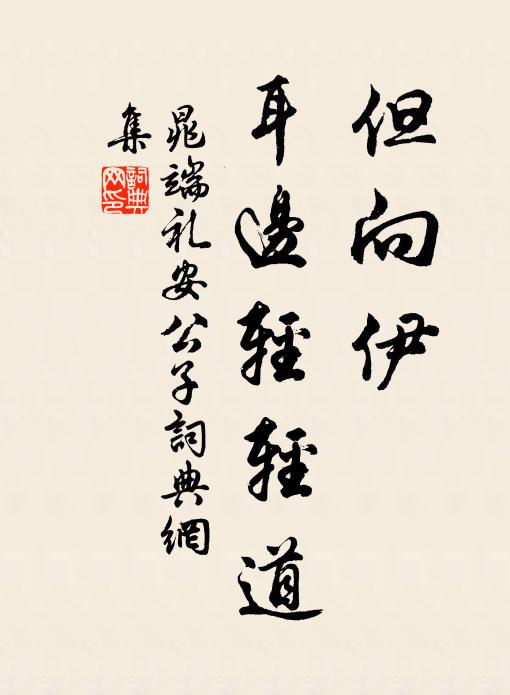 但向伊
耳邊輕輕道
晁端礼安公子詞典網
集
詞典
网印